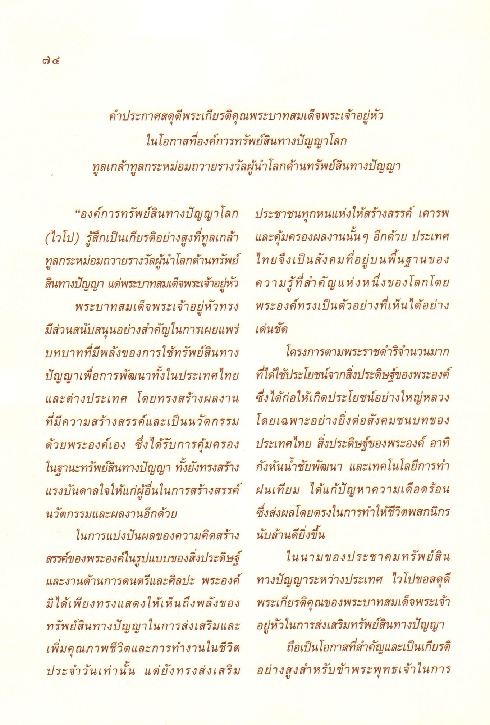 ๗๔
คำประกาศสดุดีพระเกียรติคุณพระบาทสมเด็จพระเจ้าอยู่หัว
ในโอกาสที่องค์การทรัพย์สินทางปัญญาโลก
ทูลเกล้าทูลกระหม่อมถวายรางวัลผู้นำโลกด้านทรัพย์สินทางปัญญา
“องค์การทรัพย์สินทางปัญญาโลก
(ไวโป) รู้สึกเป็นเกียรติอย่างสูงที่ทูลเกล้า
ทูลกระหม่อมถวายรางวัลผู้นำโลกด้านทรัพย์
สินทางปัญญา แด่พระบาทสมเด็จพระเจ้าอยู่หัว
พระบาทสมเด็จพระเจ้าอยู่หัวทรง
มีส่วนสนับสนุนอย่างสำคัญในการเผยแพร่
บทบาทที่มีพลังของการใช้ทรัพย์สินทาง
ปัญญาเพื่อการพัฒนาทั้งในประเทศไทย
และต่างประเทศ โดยทรงสร้างผลงาน
ที่มีความสร้างสรรค์และเป็นนวัตกรรม
ด้วยพระองค์เอง ซึ่งได้รับการคุ้มครอง
ในฐานะทรัพย์สินทางปัญญา ทั้งยังทรงสร้าง
แรงบันดาลใจให้แก่ผู้อื่นในการสร้างสรรค์
นวัตกรรมและผลงานอีกด้วย
ในการแบ่งปันผลของความคิดสร้าง
สรรค์ของพระองค์ในรูปแบบของสิ่งประดิษฐ์
และงานด้านการดนตรีและศิลปะ พระองค์
มิได้เพียงทรงแสดงให้เห็นถึงพลังของ
ทรัพย์สินทางปัญญาในการส่งเสริมและ
เพิ่มคุณภาพชีวิตและการทำงานในชีวิต
ประจำวันเท่านั้น แต่ยังทรงส่งเสริม
ประชาชนทุกหนแห่งให้สร้างสรรค์ เคารพ
และคุ้มครองผลงานนั้นๆ อีกด้วย ประเทศ
ไทยจึงเป็นสังคมที่อยู่บนพื้นฐานของ
ความรู้ที่สำคัญแห่งหนึ่งของโลกโดย
พระองค์ทรงเป็นตัวอย่างที่เห็นได้อย่าง
เด่นชัด
โครงการตามพระราชดำริจำนวนมาก
ที่ได้ใช้ประโยชน์จากสิ่งประดิษฐ์ของพระองค์
ซึ่งได้ก่อให้เกิดประโยชน์อย่างใหญ่หลวง
โดยเฉพาะอย่างยิ่งต่อสังคมชนบทของ
ประเทศไทย สิ่งประดิษฐ์ของพระองค์ อาทิ
กังหันน้ำชัยพัฒนา และเทคโนโลยีการทำ
ฝนเทียม ได้แก้ปัญหาความเดือดร้อน
ซึ่งส่งผลโดยตรงในการทำให้ชีวิตพสกนิกร
นับล้านดียิ่งขึ้น
ในนามของประชาคมทรัพย์สิน
ทางปัญญาระหว่างประเทศ ไวโปขอสดุดี
พระเกียรติคุณของพระบาทสมเด็จพระเจ้า
อยู่หัวในการส่งเสริมทรัพย์สินทางปัญญา
ถือเป็นโอกาสที่สำคัญและเป็นเกียรติ
อย่างสูงสำหรับข้าพระพุทธเจ้าในการ